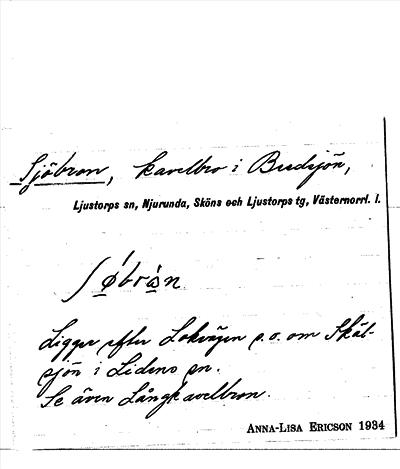 Sjöbron, kavelbro i Bredsjön,
Ljustorps sn, Njurunda, Sköns och Ljustorps tg, Västernorrl. l.
ʃǿbràn
Ligger efter Lokvägen s.o. om Skäl-
sjön i Lidens sn.
Se även Långkavelbron.
ANNA-LISA ERICSON 1934